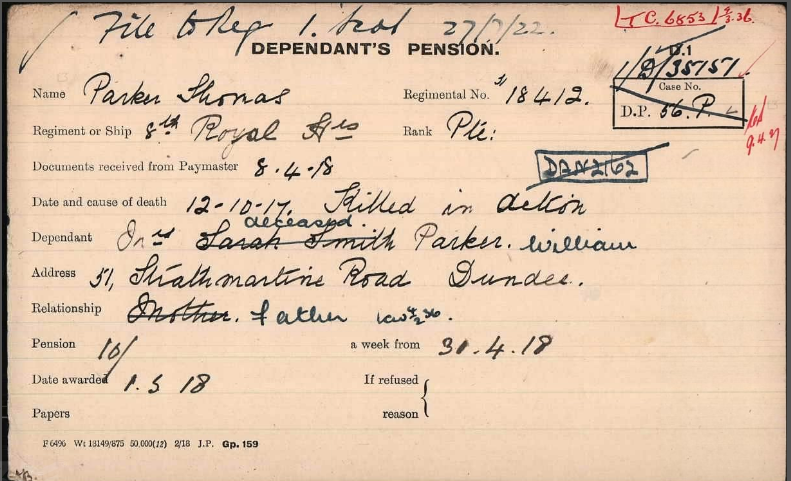 File to Reg 1. Scot 27/7/22.
L T C. 6853 / 2.3.36.
DEPENDANT'S PENSION.
D.1
1/D/35151
Name Parker Thomas
Regimental No. S/18412.
Case No.
D.P. 56. P.
Regiment or Ship 8th Royal Hrs
Rank Pte:
9.4.37
Documents received from Paymaster 8.4.18
DAN2/62
Date and cause of death 12-10-17. Killed in action
deceased.
Dependant Mrs Sarah Smith Parker. William
Address 51, Strathmartine Road Dundee.
Relationship Mother. father
Pension 10/ a week from 30.4.18
Date awarded 1.5 18 If refused
Papers reason
F 6496 Wt 18149/875 50,000(12) 2/18 J.P. Gp. 159